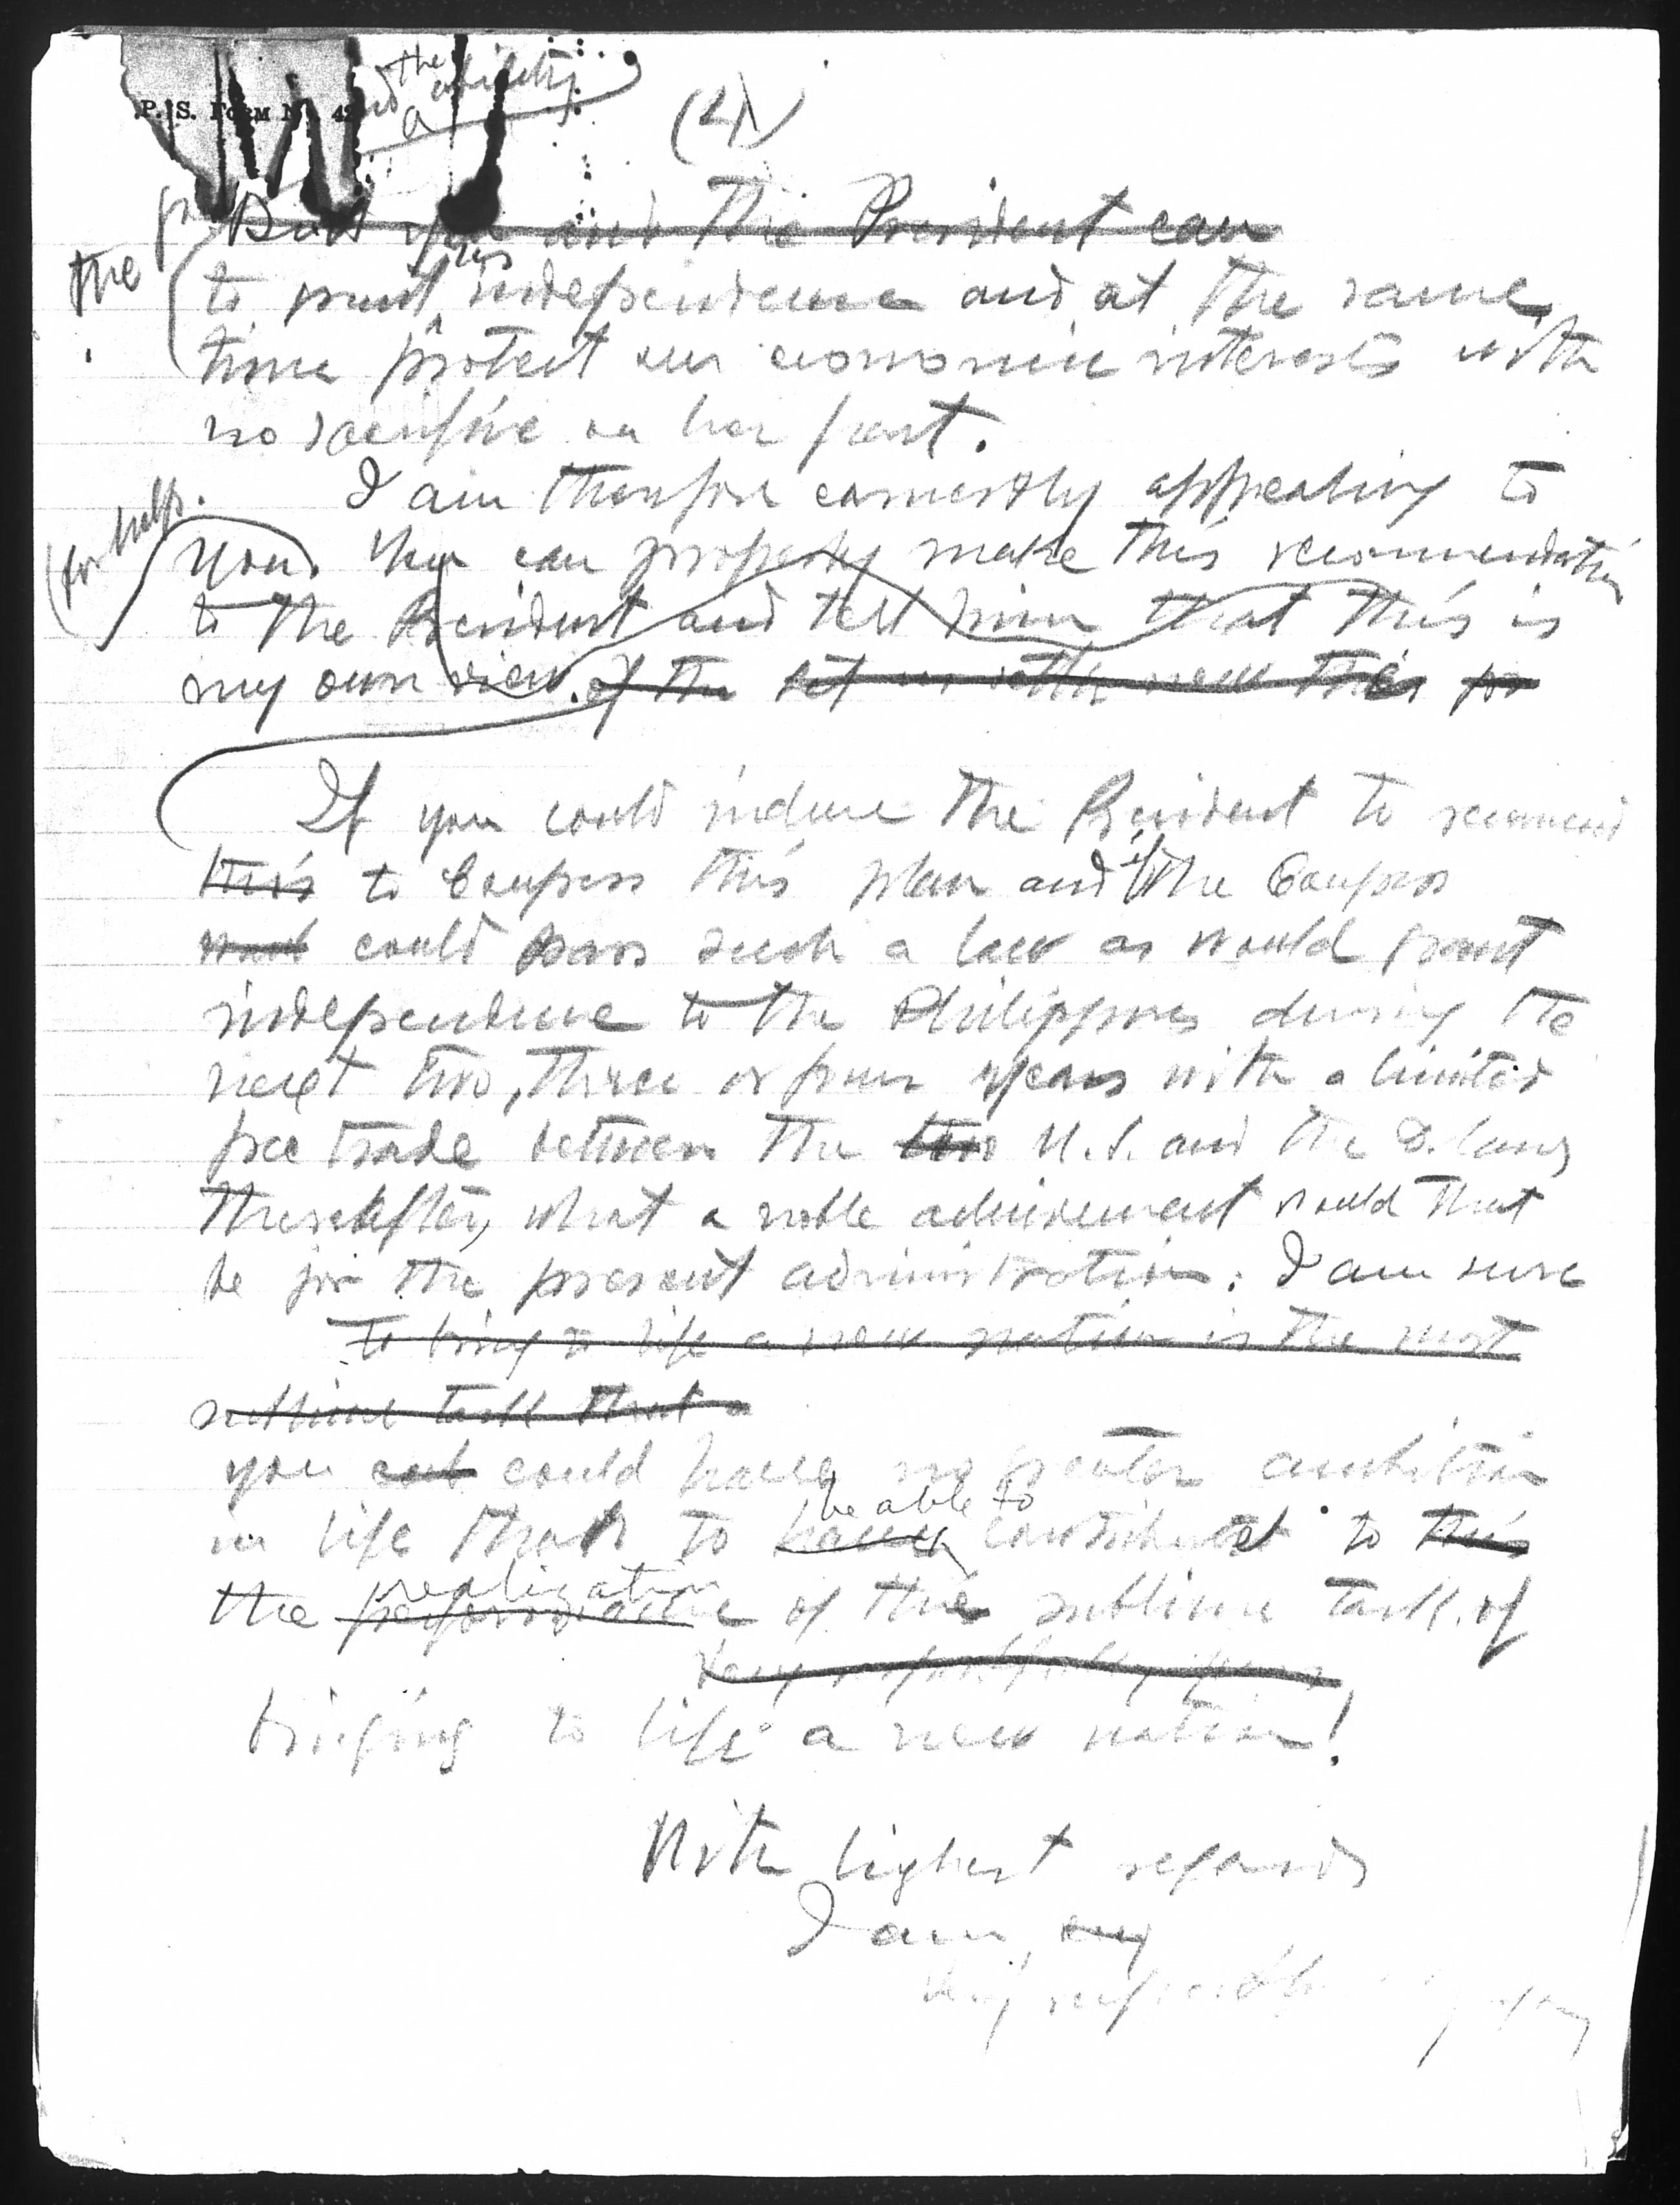 the ability
P. S. FORM No. 4
(4)
But you and the President can
the
to grant us independence and at the same
time protect our economic interests with
no sacrifice on her part.
I am therefore earnestly appealing to
(for help.
you. You can properly make this recommendation
to the President and tell him that this is
my own view. of the
If you could induce the President to recommend
this to Congress this plan and if the Congress
would could pass such a law as would grant
independence to the Philippines during the
next two, three or four years with a limited
free trade between the two U.S. and the P. Islands
thereafter, what a noble achievement would that
be for the present administration. I am sure
To bring to life a new nation is the most
sublime task that a
you could have no greater ambition
be able to
in life than to have contribute to this
realization
the performance of the sublime task of
Very respectfully yours
bringing to life a new nation!
With highest regards
I am, very
Very respectfully